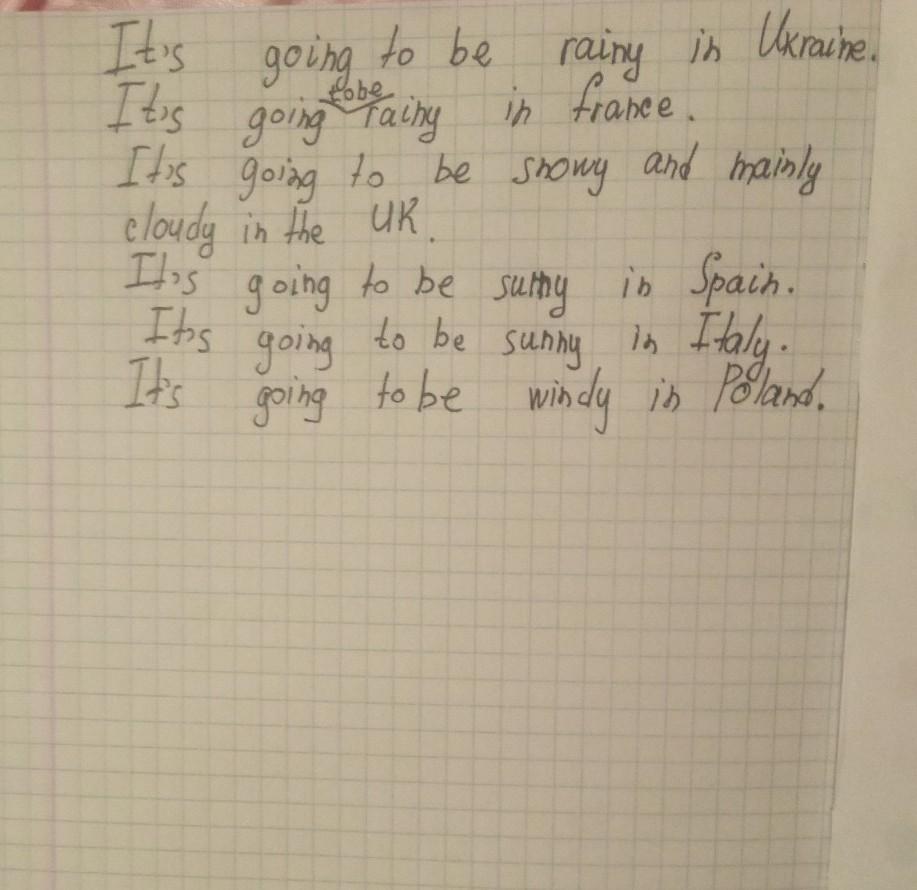 It's going to be rainy in Ukraine.
It's going to be rainy in france.
It's going to be snowy and mainly
cloudy in the UK.
It's going to be sunny in Spain.
It's going to be sunny in Italy.
It's going to be windy in Poland.